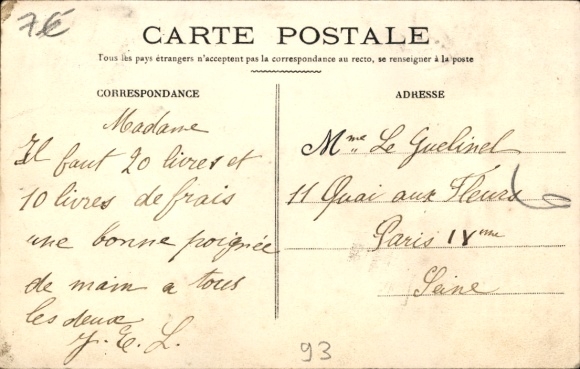 7€
CARTE POSTALE
Tous les pays étrangers n'acceptent pas la correspondance au recto, se renseigner à la poste
CORRESPONDANCE
Madame
Il faut 20 livres et
10 livres de frais
une bonne poignée
de main a tous
les deux
J. E. L.
ADRESSE
Mme Le Guelinel
11 Quai aux Fleurs
Paris IVme
Seine
93